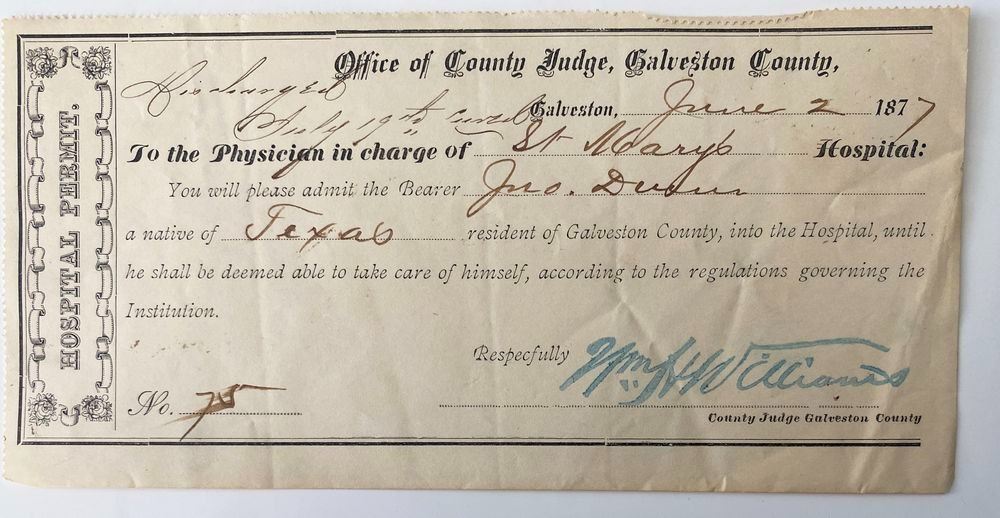 HOSPITAL PERMIT.
Office of County Judge, Galveston County,
Discharged
July 19th cured
Galveston, June 2 1877
To the Physician in charge of St Marys Hospital:
You will please admit the Bearer Jno.
a native of Texas resident of Galveston County, into the Hospital, until
he shall be deemed able to take care of himself, according to the regulations governing the
Institution.
Respecfully Wm H Williams
No. 75
County Judge Galveston County